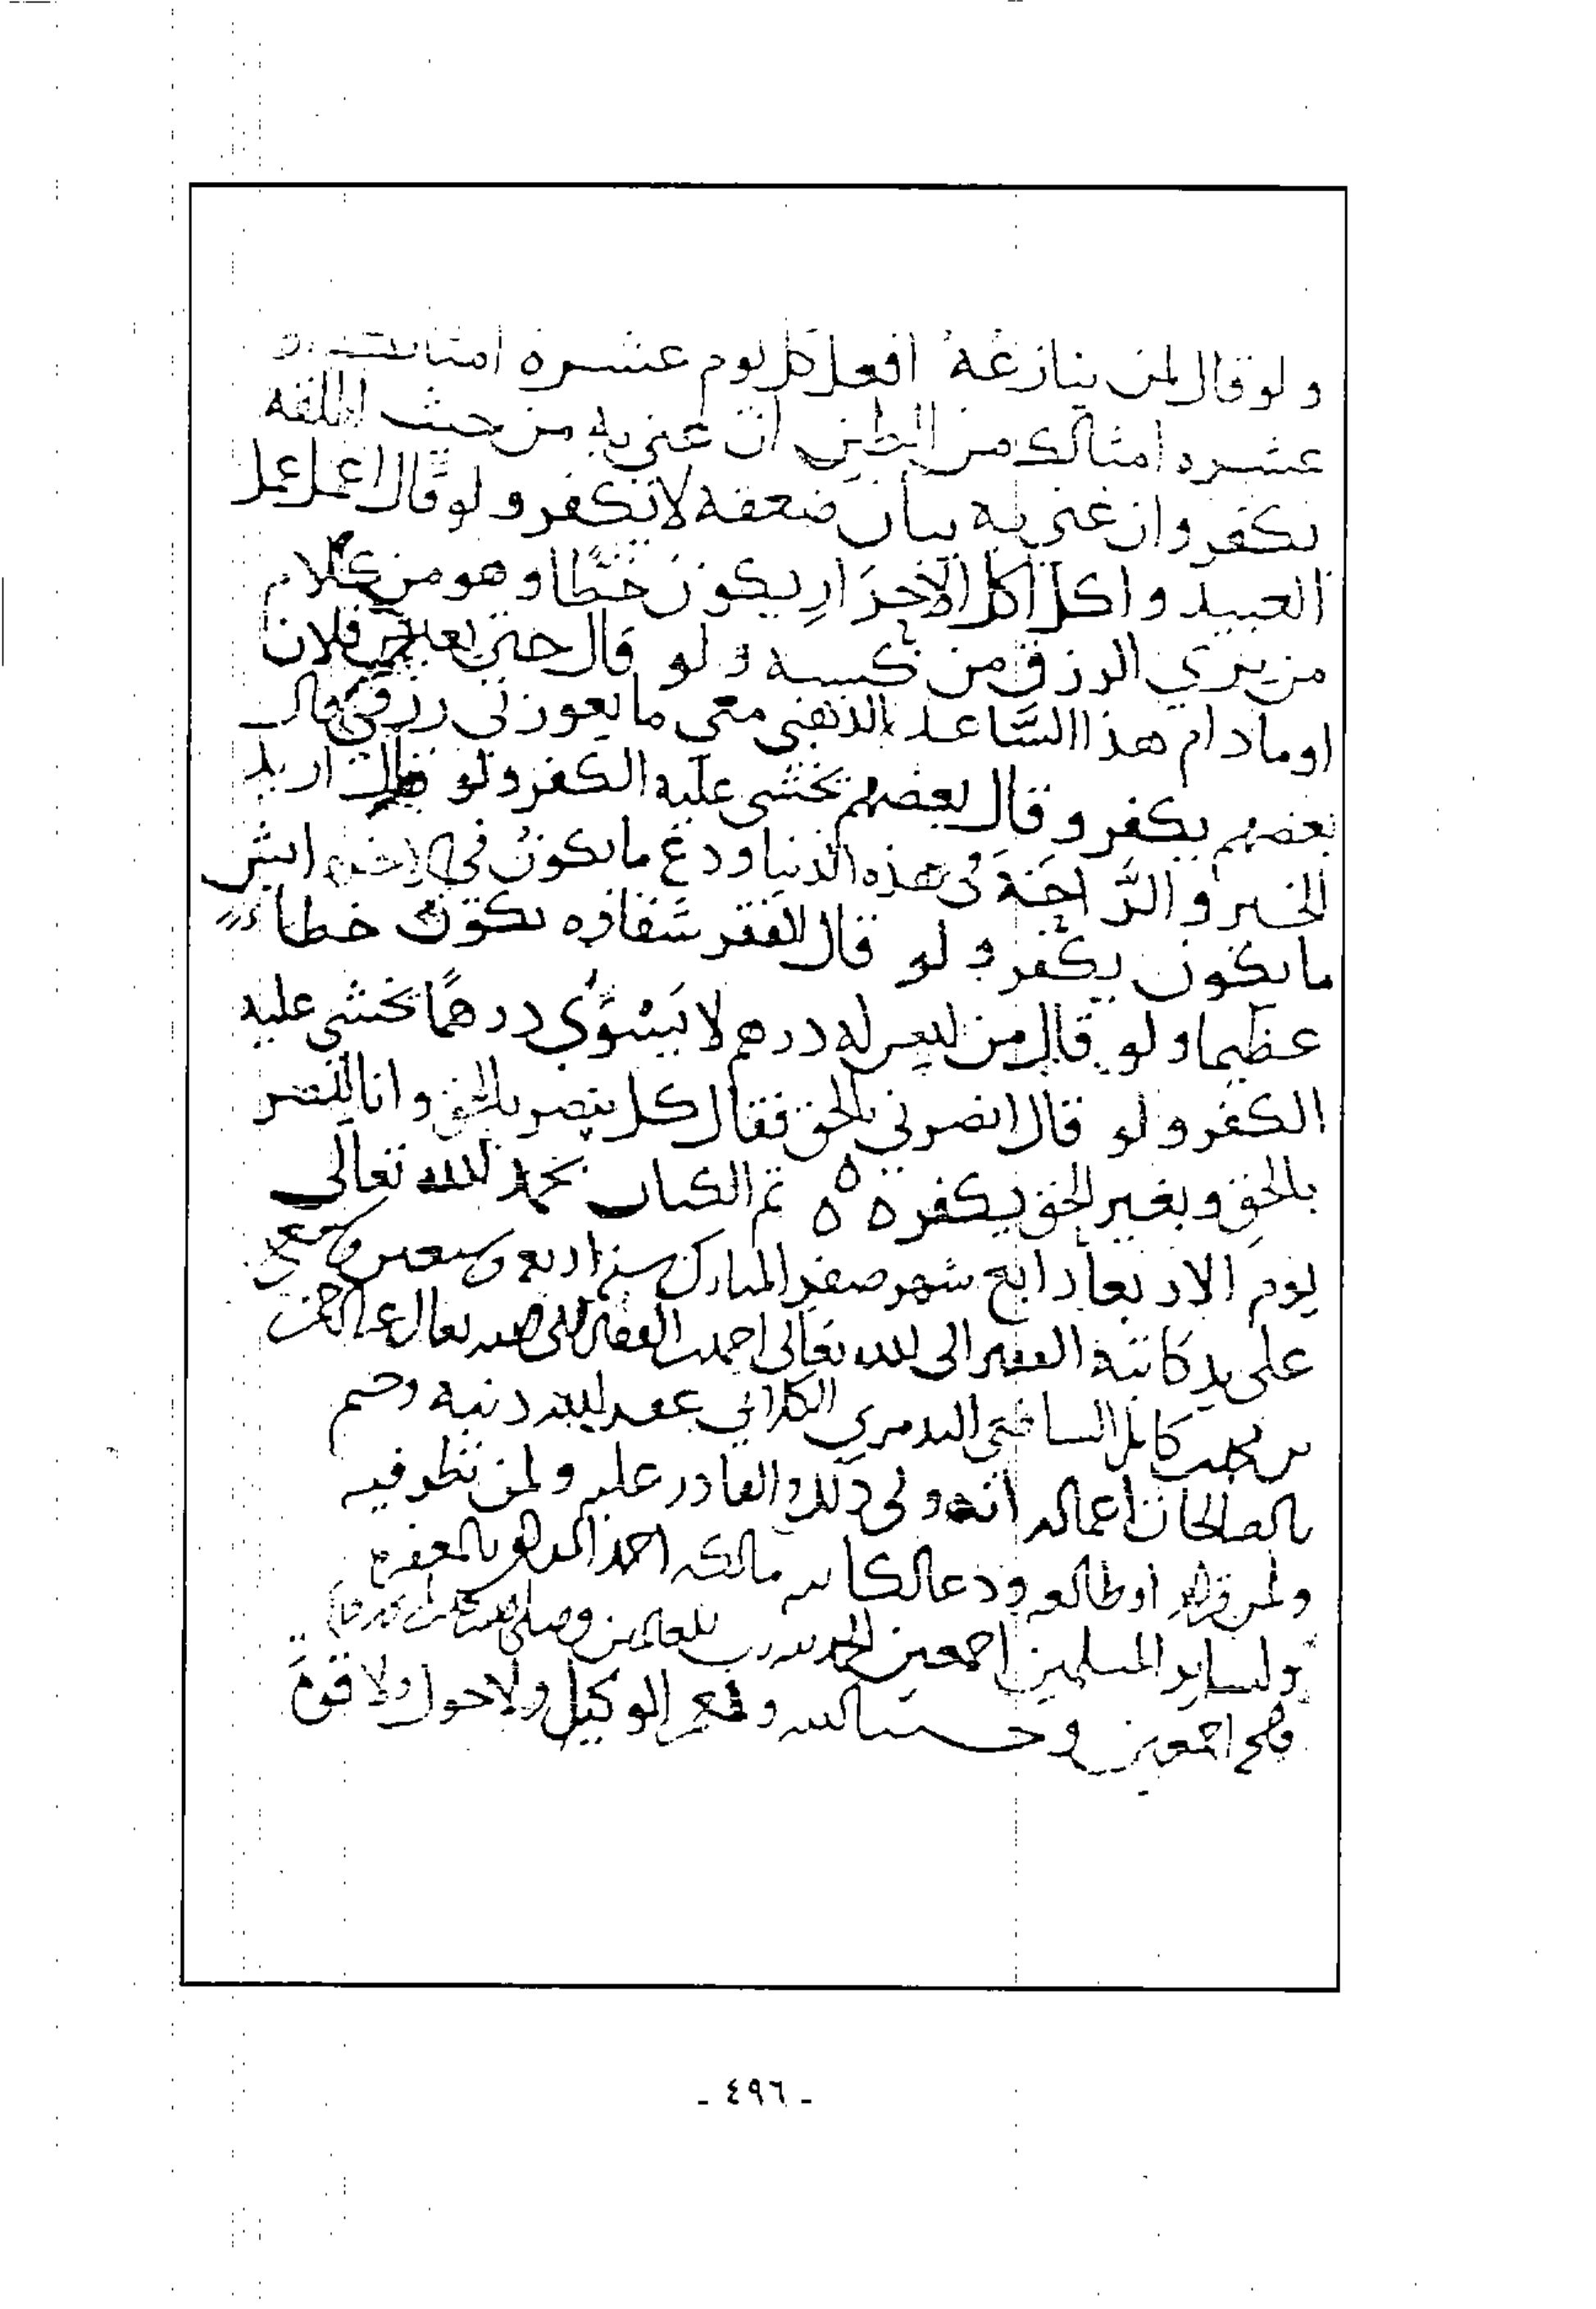 ولو قال لمن ينازعه افعل كل يوم عشره امثالك
عشره امثالك من الطين ان عني به من حيث الخلقه
يكفر وان عني به بيان ضعفه لا يكفر ولو قال اعمل عمل
العبيد واكل اكل الاحرار يكون خطا وهو من كلام
من يري الرزق من كسبه ولو قال حتي فلان
او مادام هذا الساعد الذهبي معي ما يعوزني رزقي قال
بعضهم يكفر وقال بعضهم يخشي عليه الكفر ولو قال اريد
الخير والراحة في هذه الدنيا ودع ما يكون في الاخره ايش
ما يكون يكفر ولو قال الفقر شقاوه يكون خطاءً
عظيما ولو قال من ليس له درهم لا يسوي درهمًا يخشي عليه
الكفر ولو قال انصرني بالحق فقال كل ينصر بالحق وانا انصر
بالحق وبغير الحق يكفر ٥ ٥ ٥ تم الكتاب بحمد الله تعالى
يوم الاربعا رابع شهر صفر المبارك سنه اربع
على يد كاتبه الفقير الى الله تعالى احمد
التدمري عفر الله ذنبه وختم
بالصالحات اعماله انه ولي ذلك والقادر عليه ولمن نظر فيه
ولمن قراه او طالعه ودعا لكاتبه مالكه احمد بالمغفره
ولساير المسلمين اجمعين الحمد لله رب العالمين وصلى الله
اجمعين وحسبنا الله ونعم الوكيل ولا حول ولا قوة
- ٤٩٦ -